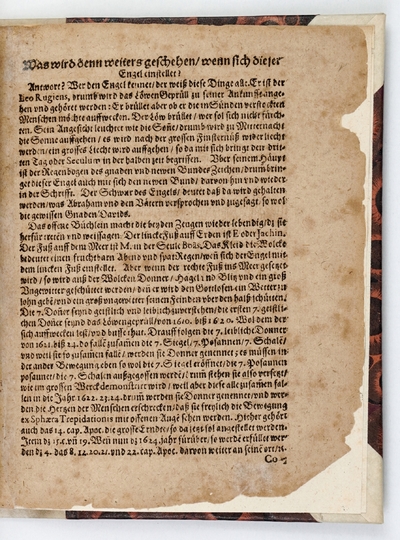 Was wird denn weiters geschehen/ wenn sich dieser
Engel einstellet?
Antwort? Wer den Engel kennet/ der weiß diese Dinge alle. Er ist der
Leo Rugiens, drumb wird das Löwen Geprüll zu seiner Ankunfft ange-
hen und gehöret werden: Er brüllet aber ob er die in Sünden versteckten
Menschen möchte auffwecken. Der Löw brüllet/ wer sol sich nicht fürch-
ten. Sein Angesicht leuchtet wie die Soñe/ drumb wird zu Mitternacht
die Sonne auffgehen/ es wird nach der grossen Finsternüß wider liecht
werden/ ein grosses Liecht wird auffgehen/ so da mit sich bringt den drit-
ten Tag oder Seculum in der halben zeit begriffen. Uber seinem Häupt
ist der Regenbogen des gnaden und newen Bundes Zeichen/ drum brin-
get dieser Engel auch mit sich den newen Bund/ darvon hin und wieder
in der Schrifft. Der Schwur des Engels/ deutet daß da wird gehalten
werden/ was Abraham und den Vätern versprochen und zugesagt, so wol
die gewissen Gnaden Davids.
Das offene Büchlein macht die beyden Zeugen wieder lebendig/ dz sie
herfür treten und weissagen. Der lincke Fuß auff Erden ist E oder Jachin,
Der Fuß auff dem Meer ist M. in der Seule Boas. Das Kleid die Wolcke
bedeutet einen fruchtbarn Abend und spat Regen/ weñ sich der Engel mit
dem lincken Fuß einstellet. Aber wenn der rechte Fuß ins Meer gesetzt
wird/ so wird auß der Wolcken Donner/ Hagel und Blitz und ein groß
Ungewitter geschüttet werden/ den er wird den Gottlosen ein Wetter zu
lohn gebē/ und ein groß ungewitter seinen Feinden uber den halß schüttē/
Die 7. Doñer seynd geistlich und leiblich zuverstehen/ die ersten 7. geistli-
chen Doñer seynd das Löwengeprüll/ von 1610. biß 1620. Wol dem der
sich auffwecken lest/ und busse thut. Drauff folgen die 7. leibliche Donner
von 1621. biß 24. do fallē zusamēn die 7. Siegel/ 7. Posaunen/ 7. Schalē/
und weil sie so zusamēn fallē/ werden sie Donner genennet; es müssen in
der ander Bewegung eben so wol die 7. Siegel eröffnet/ die 7. Posaunen
posaunet/ die 7. Schalen außgegossen werdē/ drum stehen sie also versetzt/
wie im grossen Werck demonstriret wird/ weil aber diese alle zusamēn fal-
len in die Jahr 1622. 23. 24. drum werden sie Donner genennet/ und wer-
den die Hertzen der Menschen erschrecken/ daß sie freylich die Bewegung
ex Sphæra Trepidationis mit offenen Augē sehen werden. Hieher gehöret
auch das 14. cap. Apoc. die grosse Erndte/ so da jetzt sol angestellet werden.
Item dz 15. c. uñ 19. Weñ nun dz 1624. jahr fürüber/ so werdē erfüllet wer-
den dz 4. das 8. 11. 20. 21. und 22. cap. Apoc. darvon weiter an seinē ort/ rc.
Co-